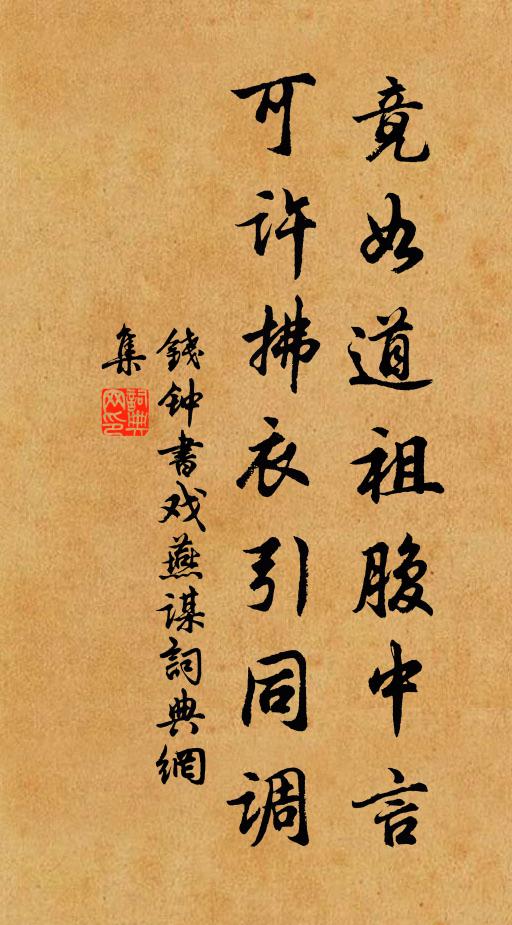 竟如道祖腹中言
可许拂衣引同调
錢钟書戏燕谋詞典網
集
詞典網印